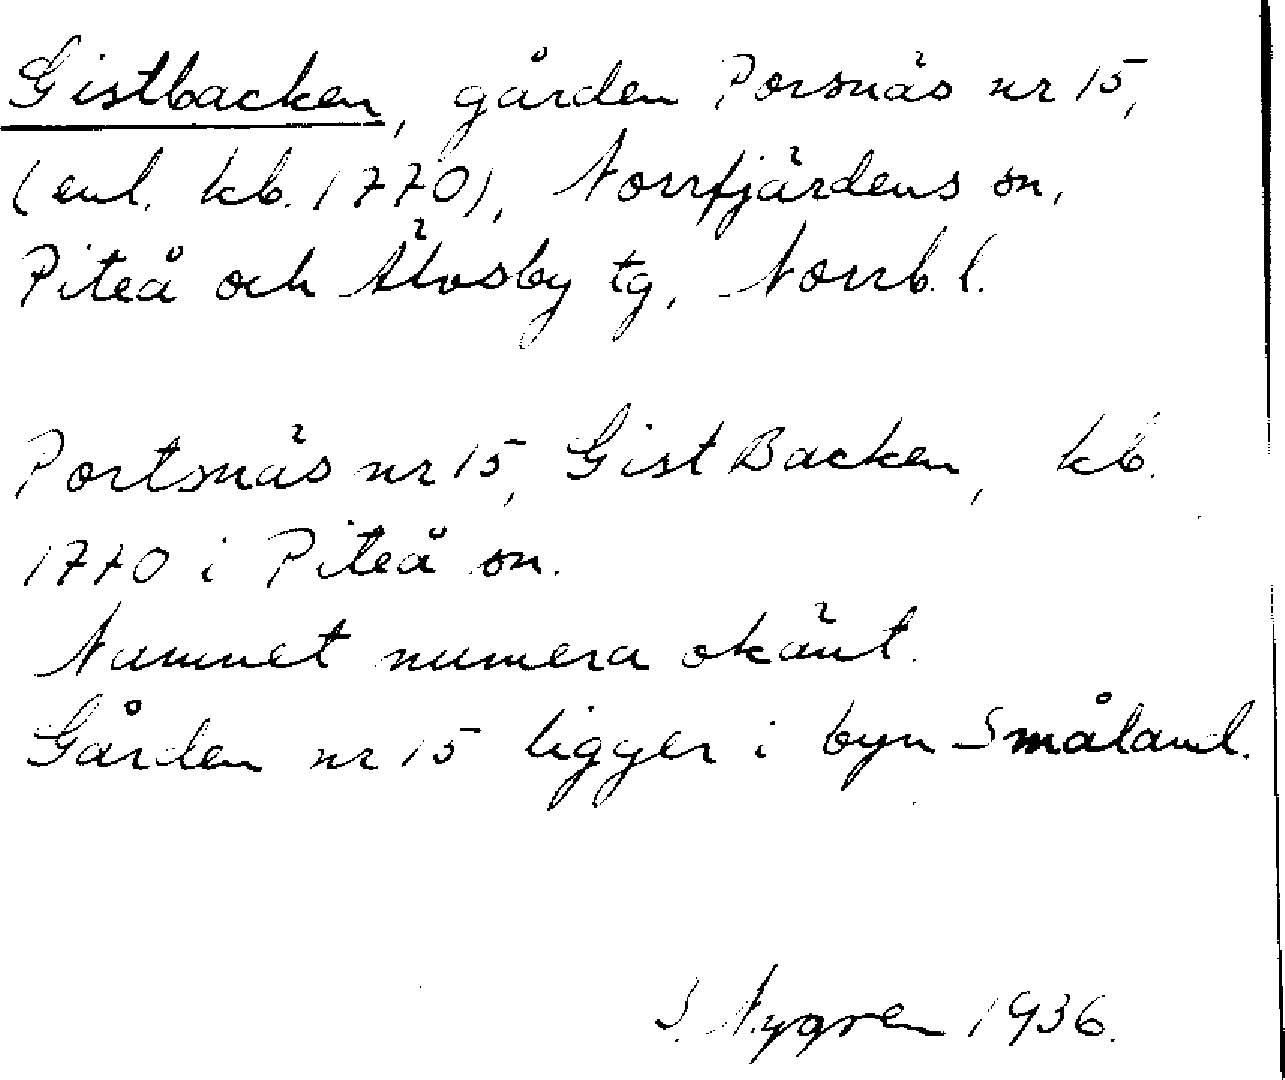 Gistbacken, gården Porsnäs nr 15,
(enl. kb. 1770), Norrfjärdens sn,
Piteå och Älvsby tg, Norrb. l.
Portsnäs nr 15, Gist Backen, kb.
1770 i Piteå sn.
Namnet numera okänt.
Gården nr 15 ligger i byn Småland.
J. Nygren 1936.